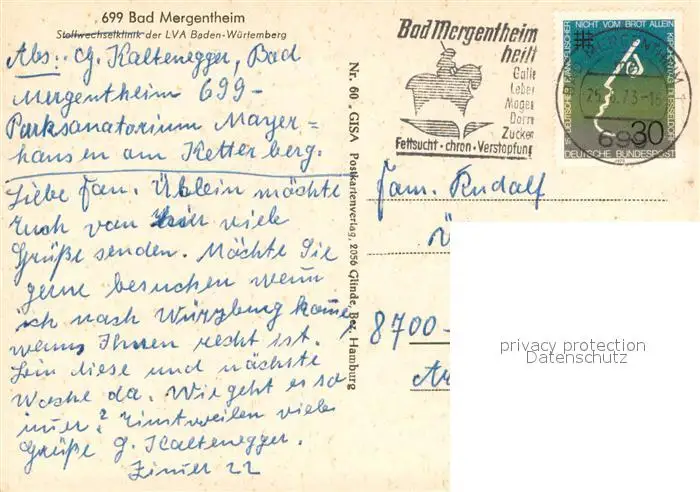 699 Bad Mergentheim
Stoffwechselklinik der LVA Baden-Württemberg
Abs: G. Kaltenegger, Bad
Mergentheim 699-
Parksanatorium Mayer=
hausen am Ketterberg.
Liebe Fam. Üblein möchte
Euch von hier viele
Grüße senden. Möchte Sie
gerne besuchen wenn
ich nach Würzburg komme,
wenn Ihnen recht ist.
Bin diese und nächste
Woche da. Wie geht es so
immer? Einstweilen viele
Grüße G. Kaltenegger.
Zimmer 22
Nr. 60 „GISA" Postkartenverlag, 2056 Glinde, Bez. Hamburg
Bad Mergentheim
heilt
Galle
Leber
Magen
Darm
Zucker
Fettsucht · chron · Verstopfung
NICHT VOM BROT ALLEIN
15. DEUTSCHER EVANGELISCHER KIRCHENTAG DÜSSELDORF
30
DEUTSCHE BUNDESPOST
BAD MERGENTHEIM 1
699
Fam. Rudolf
Ü
8700-
privacy protection
Datenschutz